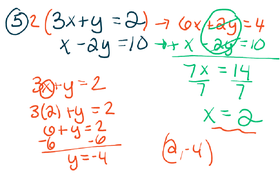 ⑤ 2(3x+y=2) → 6x+2y=4
x-2y=10 → + x-2y=10
7x = 14
7 7
x = 2
3x+y=2
3(2)+y=2
6+y=2
-6 -6
y=-4
(2,-4)